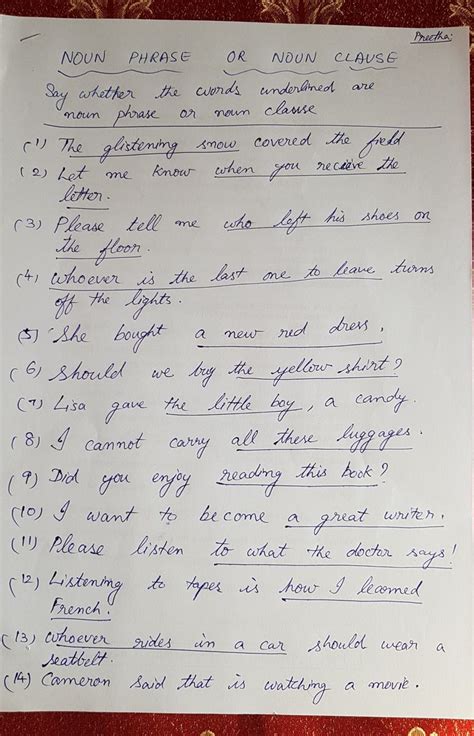 Preetha:
NOUN PHRASE OR NOUN CLAUSE
Say whether the words underlined are
noun phrase or noun clause
(1) The glistening snow covered the field
(2) Let me know when you recieve the
letter.
(3) Please tell me who left his shoes on
the floor.
(4) Whoever is the last one to leave turns
off the lights.
(5) She bought a new red dress.
(6) Should we buy the yellow shirt?
(7) Lisa gave the little boy, a candy.
(8) I cannot carry all these luggages.
(9) Did you enjoy reading this book?
(10) I want to become a great writer.
(11) Please listen to what the doctor says!
(12) Listening to tapes is how I learned
French.
(13) Whoever rides in a car should wear a
seatbelt.
(14) Cameron said that is watching a movie.